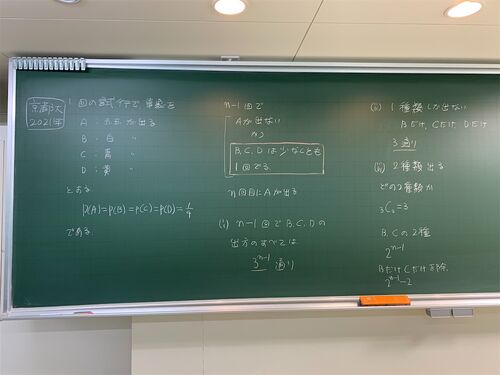 京都大
2021年
1回の試行で事象を
A : 赤玉が出る
B : 白 〃
C : 青 〃
D : 黄 〃
とする
P(A)=P(B)=P(C)=P(D)=1/4
である.
n-1回で
Aが出ない
かつ
B, C, Dは少なくとも
1回でる
n回目にAが出る
(i) n-1回でB, C, Dの
出方のすべては
3^{n-1} 通り
(ii) 1種類しか出ない
Bだけ, Cだけ, Dだけ
3通り
(iii) 2種類出る
どの2種類か
₃C₂=3
B, Cの2種
2^{n-1}
BだけCだけを除く
2^{n-1}-2